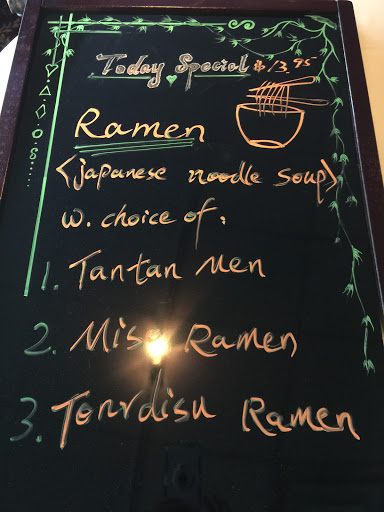 Today Special $13.95
Ramen
<japanese noodle soup>
w. choice of:
1. Tantan Men
2. Miso Ramen
3. Tonrdisu Ramen